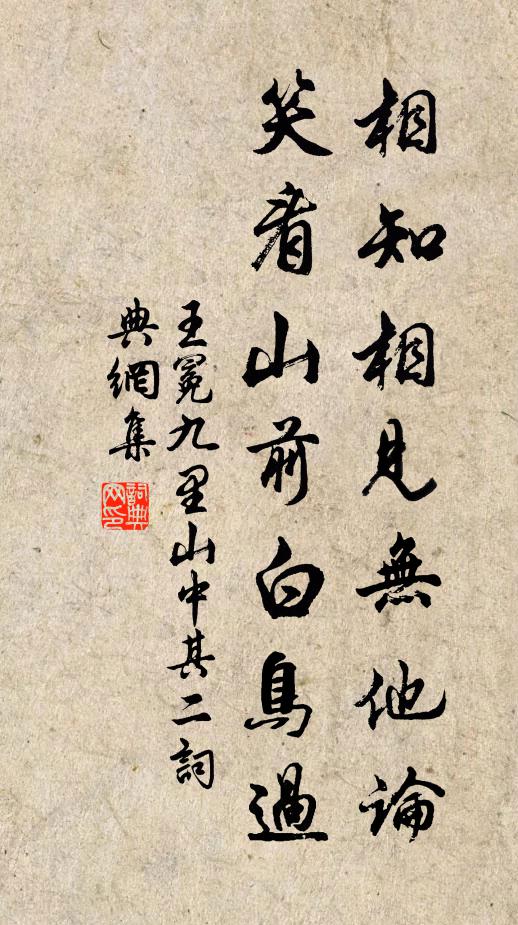 相知相見無他論
笑看山前白鳥過
王冕九里山中其二詞
典網集
詞典網印